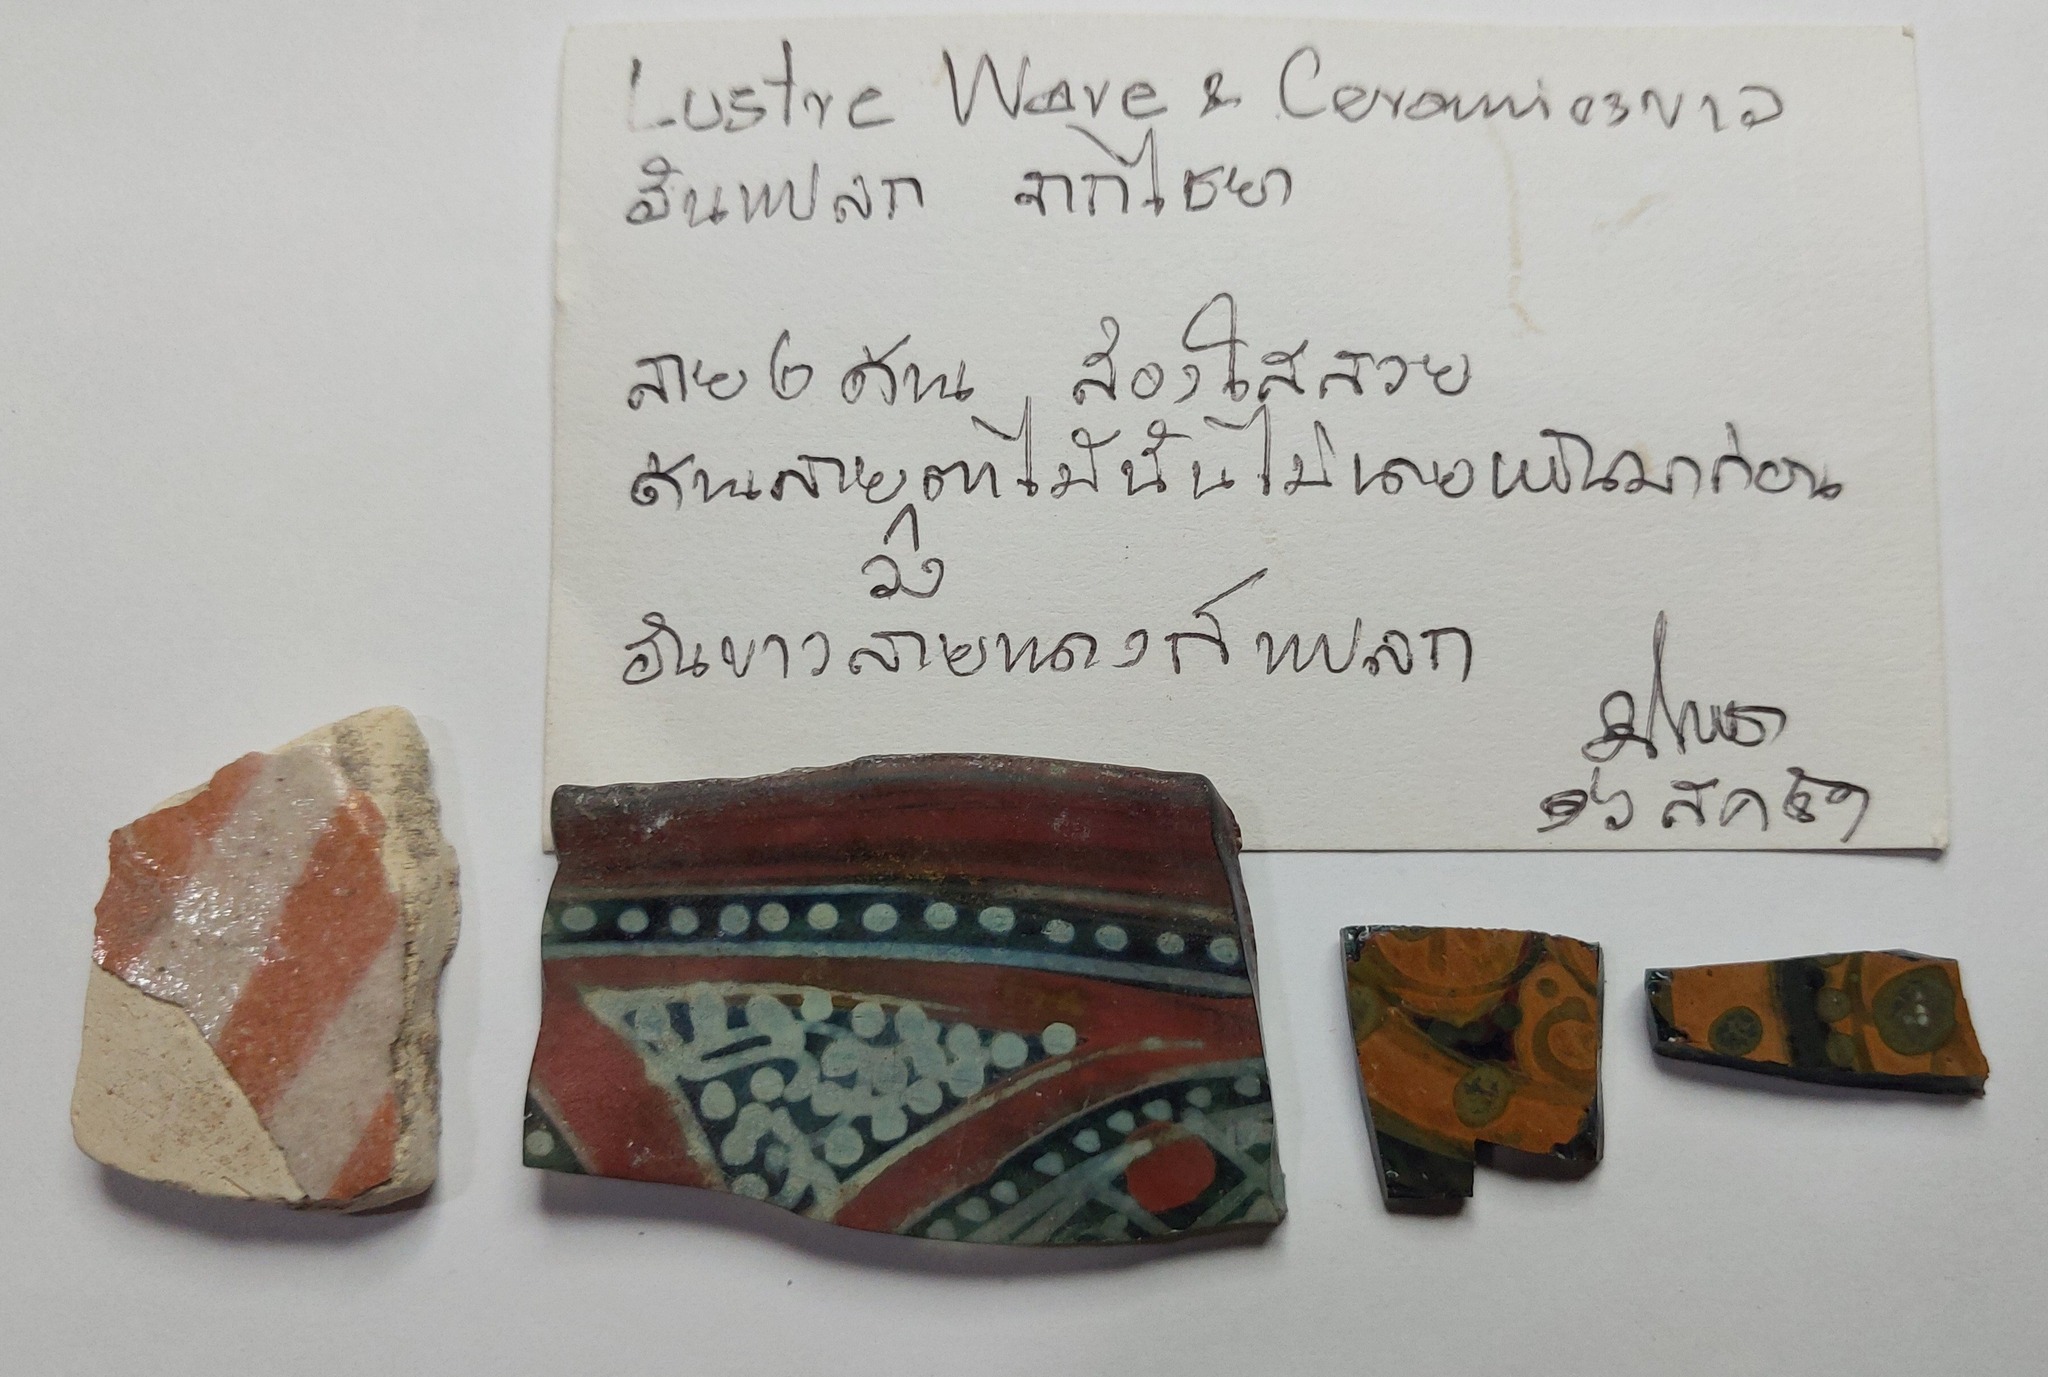 Lustre Ware & Ceramicsขาว
อันแปลก จากไชยา
ลาย ๒ ด้าน ส่องใสสวย
ด้านลายตาไม้นั้นไม่เคยเห็นมาก่อน
อันขาวลายแดงก็แปลก